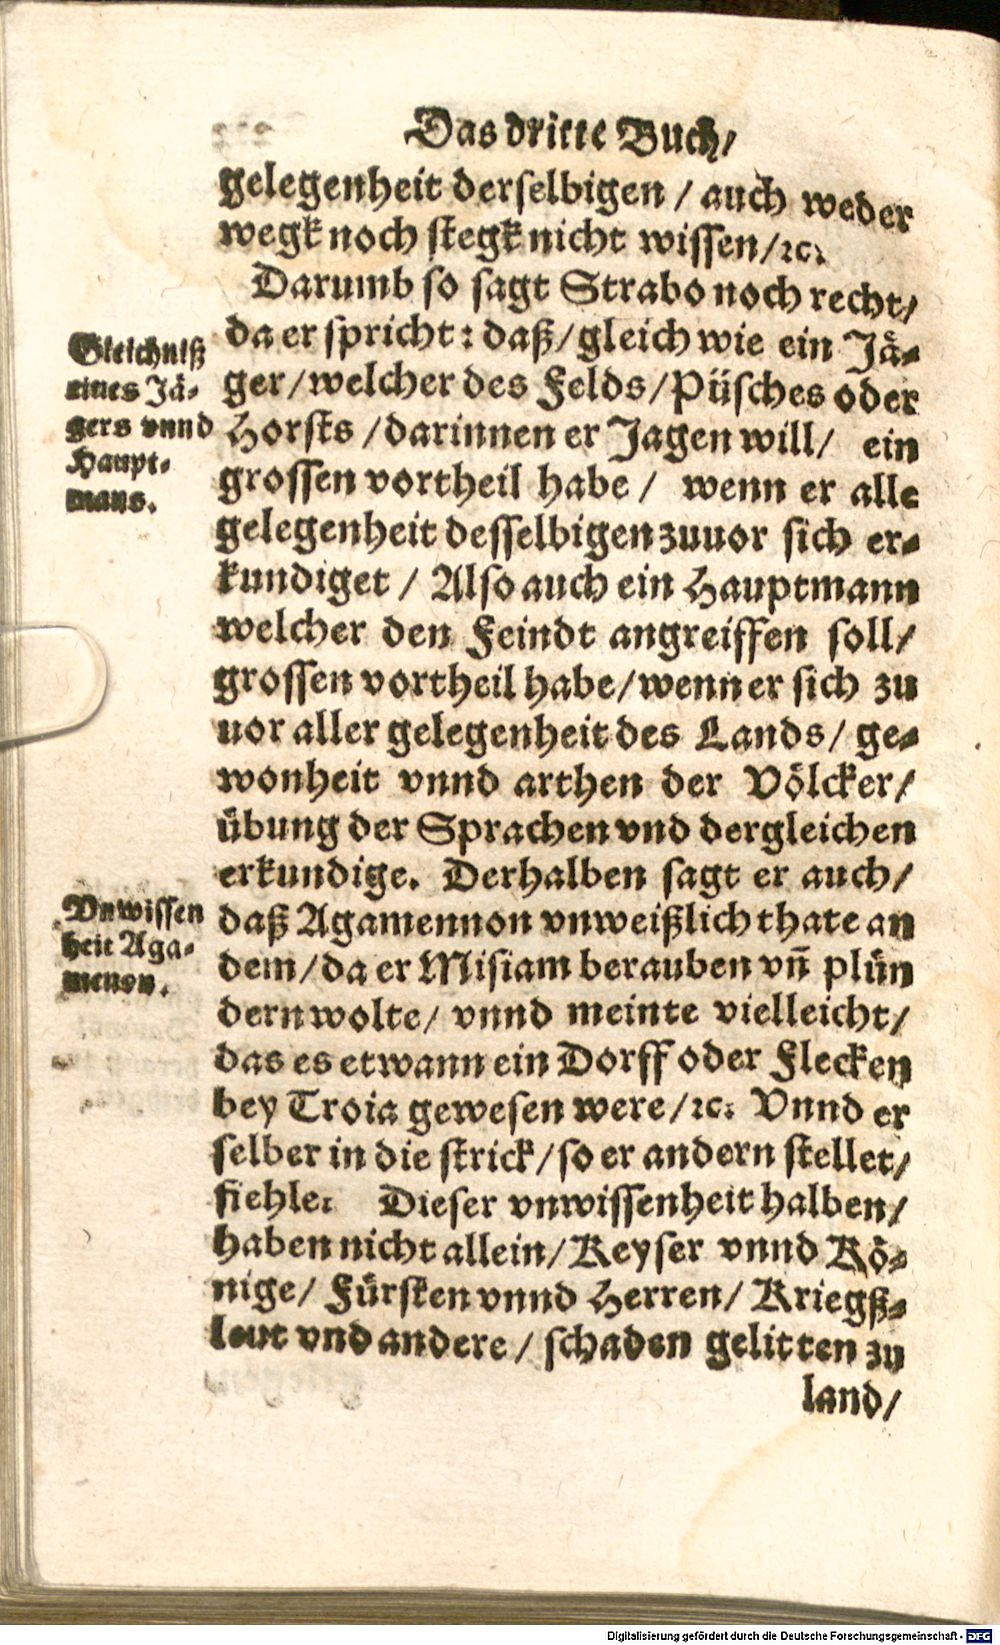 Das dritte Buch/
gelegenheit derselbigen / auch weder
wegk noch stegk nicht wissen/ꝛc.
Darumb so sagt Strabo noch recht/
da er spricht: daß/gleich wie ein Jä-
ger/welcher des Felds/Püsches oder
Horsts /darinnen er Jagen will/ ein
grossen vortheil habe / wenn er alle
gelegenheit desselbigen zuuor sich er-
kundiget / Also auch ein Hauptmann
welcher den Feindt angreiffen soll/
grossen vortheil habe/wenn er sich zu
uor aller gelegenheit des Lands/ ge-
wonheit vnnd arthen der Völcker/
übung der Sprachen vnd dergleichen
erkundige. Derhalben sagt er auch/
daß Agamennon vnweißlich thate an
dem/da er Misiam berauben vñ plün
dern wolte/ vnnd meinte vielleicht/
das es etwann ein Dorff oder Flecken
bey Troia gewesen were/ꝛc. Vnnd er
selber in die strick/so er andern stellet/
fiehle. Dieser vnwissenheit halben/
haben nicht allein/Keyser vnnd Kö-
nige/ Fürsten vnnd Herren/ Kriegß-
leut vnd andere / schaden gelitten zu
land/
Gleichniß
eines Jä-
gers vnnd
Haupt-
mans.
Vnwissen
heit Aga-
menon.
Digitalisierung gefördert durch die Deutsche Forschungsgemeinschaft - DFG